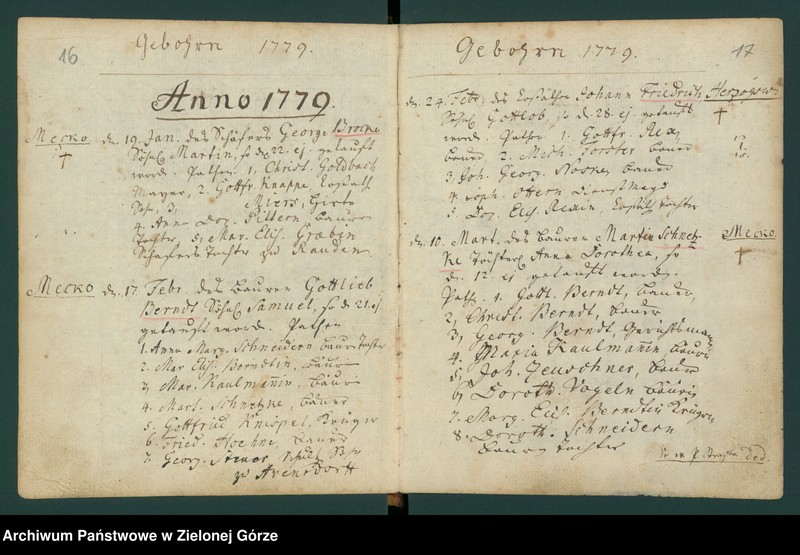 16
Gebohrn 1779.
Anno 1779.
Mecko d. 19. Jan. des Schäfers George Brocke
Söhnl. Martin, so d. 22. ej. getauft
word. Pathen. 1, Christ. Goldbach
Mayer, 2. Gottfr. Knappe, Coßäth
Sohn, 3, Miers, Hirte
4. Anna Dor. Pittern, Bauer
Tochter, 5, Mar. Elis. Grabin
Schäfers Tochter zu Rauden
Mecko d. 17. Febr. des Bauern Gottlieb
Berndt Söhnl. Samuel, so d. 21. ej.
getauft word. Pathen
1. Anna Marg. Schneidern Bauer Tochter
2. Mar Elis. Berndtin, Bäur
3, Mar. Kaulmannin, Bäur
4. Mart. Schnetzke, Bauer
5. Gottfried Knispel, Krüger
6. Fried. Hoehne, Bauer
7. Georg. Schultz Sohn
zu Arensdorff
17
Gebohrn 1779.
d. 24. Febr. des Coßäthen Johann Friedrich
Söhnl. Gottlob, so d. 28. ej getauft
word. Pathen 1. Gottfr.
Bauer, 2. Mich. Forster Bauer
3, Joh. Georg. Noske, Bauer
4. Soph. Ottern Dienstmagd
5. Dor. Elis. Coßäth Tochter
d. 10. Mart. des Bauern Martin Schnetz- Mecko.
ke Töchterl. Anna Dorothea, so
d. 12. ej getauft word.
Path. 1. Gottl. Berndt, Bauer,
2, Christ. Berndt, Bauer
3, Georg. Berndt, Gerichtsmann
4. Maria Kaulmannin Bäurin
5, Joh. Jeuschner, Bauer
6, Doroth. Vogeln Bäurin
7. Marg. Elis. Berndtin Krügerin
8. Doroth. Schneidern
Bauer Tochter
Archiwum Państwowe w Zielonej Górze